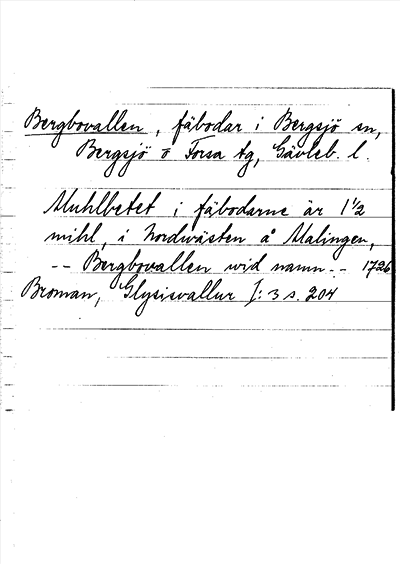 Bergbovallen, fäbodar i Bergsjö sn,
Bergsjö o Forsa tg, Gävleb. l.
Muhlbetet i fäbodarne är 1 1/2
mihl, i Nordwästen å Malingen,
-- Bergbovallen wid namn -- 1726
Broman, Glysisvallur I: 3 s. 204